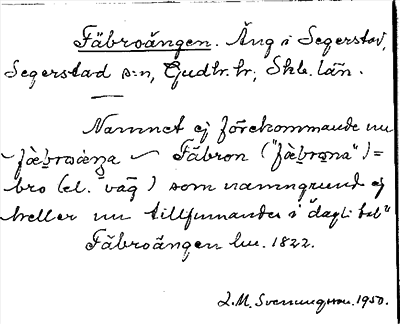 Fäbroängen. Äng i Segerstad,
Segerstad s:n, Gudh. hr, Skb. län.
Namnet ej förekommande nu
Fäbron
bro (el. väg) som namngrund ej
heller nu tillfinnandes i "dagli tal"
Fäbroängen hu. 1822.
L.M. Svenungsson. 1950.